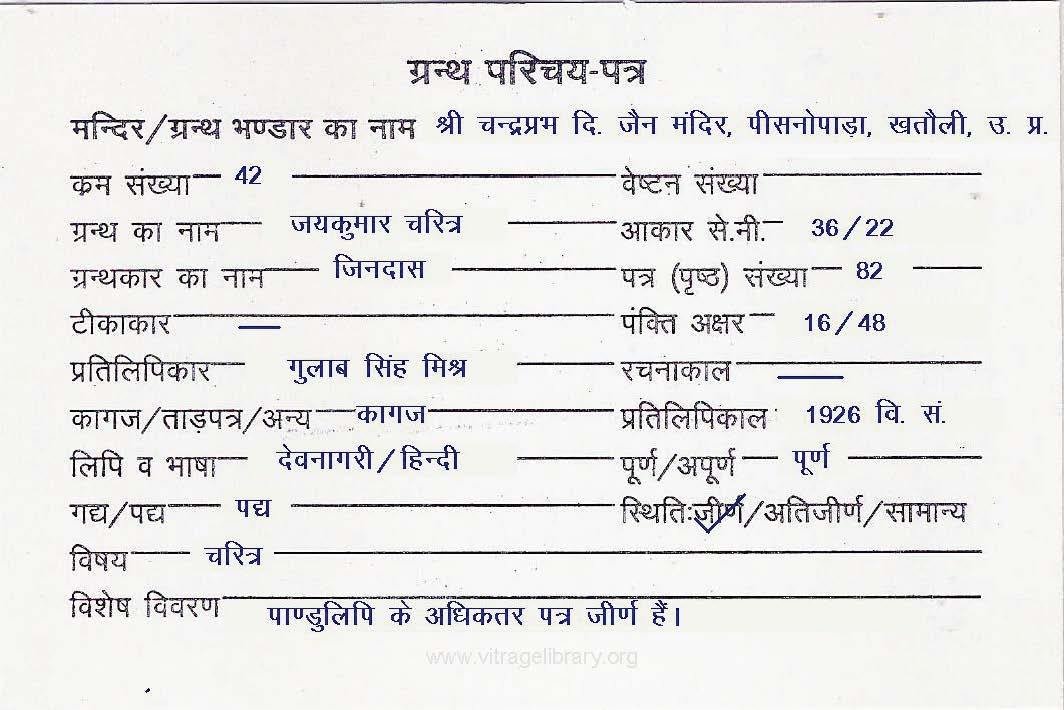 ग्रन्थ परिचय-पत्र
मन्दिर/ग्रन्थ भण्डार का नाम श्री चन्द्रप्रभ दि. जैन मंदिर, पीसनोपाड़ा, खतौली, उ. प्र.
क्रम संख्या 42 वेष्टन संख्या
ग्रन्थ का नाम जयकुमार चरित्र आकार से.मी. 36/22
ग्रन्थकार का नाम जिनदास पत्र (पृष्ठ) संख्या 82
टीकाकार — पंक्ति अक्षर 16/48
प्रतिलिपिकार गुलाब सिंह मिश्र रचनाकाल —
कागज/ताड़पत्र/अन्य कागज प्रतिलिपिकाल 1926 वि. सं.
लिपि व भाषा देवनागरी/हिन्दी पूर्ण/अपूर्ण पूर्ण
गद्य/पद्य पद्य स्थितिः जीर्ण/अतिजीर्ण/सामान्य
विषय चरित्र
विशेष विवरण पाण्डुलिपि के अधिकतर पत्र जीर्ण हैं।
www.vitragelibrary.org